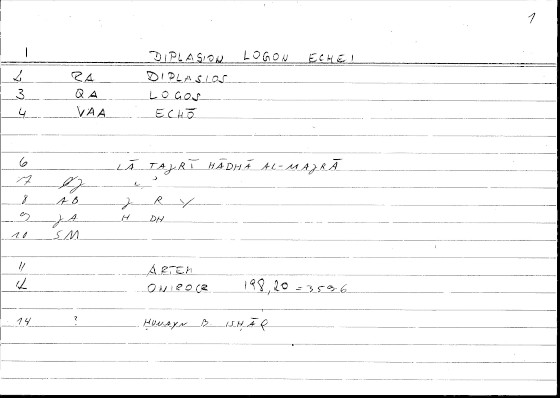 1
1 DIPLASION LOGON ECHEI
2 RA DIPLASIOS
3 QA LOGOS
4 VAA ECHŌ
6 LĀ TAJRĪ HĀDHĀ AL-MAJRĀ
7
8 AB J R Y
9 JA H DH
10 SM
11 ARTEM
12 ONIROCR 198,20 = 359,6
14 ? ḤUNAYN B. ISḤĀQ